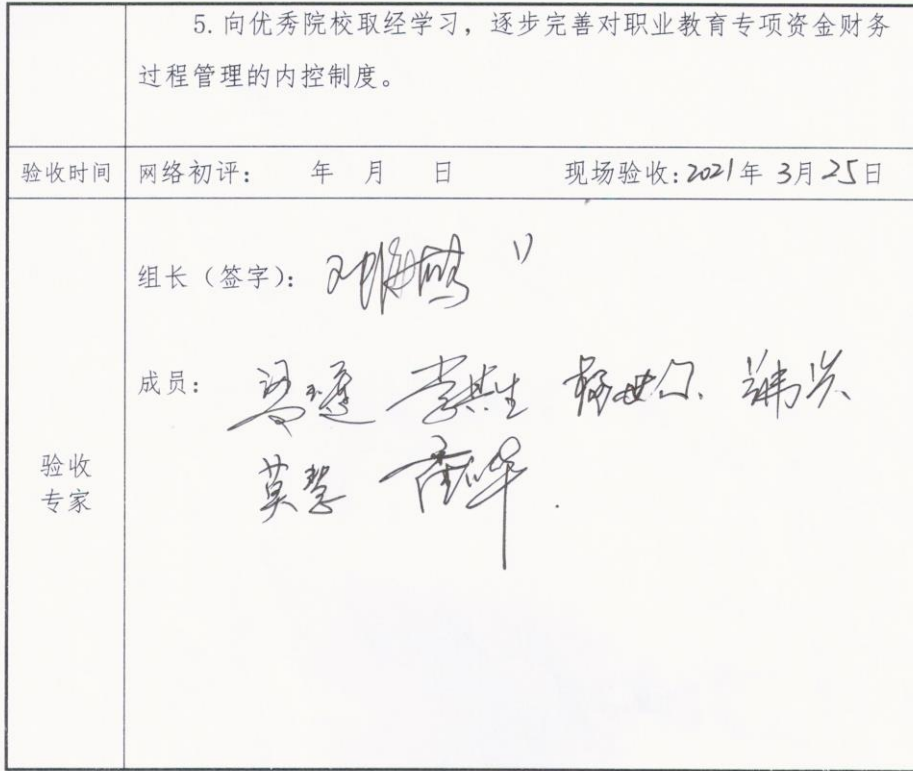 5. 向优秀院校取经学习，逐步完善对职业教育专项资金财务
过程管理的内控制度。
验收时间 网络初评： 年 月 日 现场验收：2021年 3月25日
组长（签字）：
成员： 李共生
莫慧
验收
专家